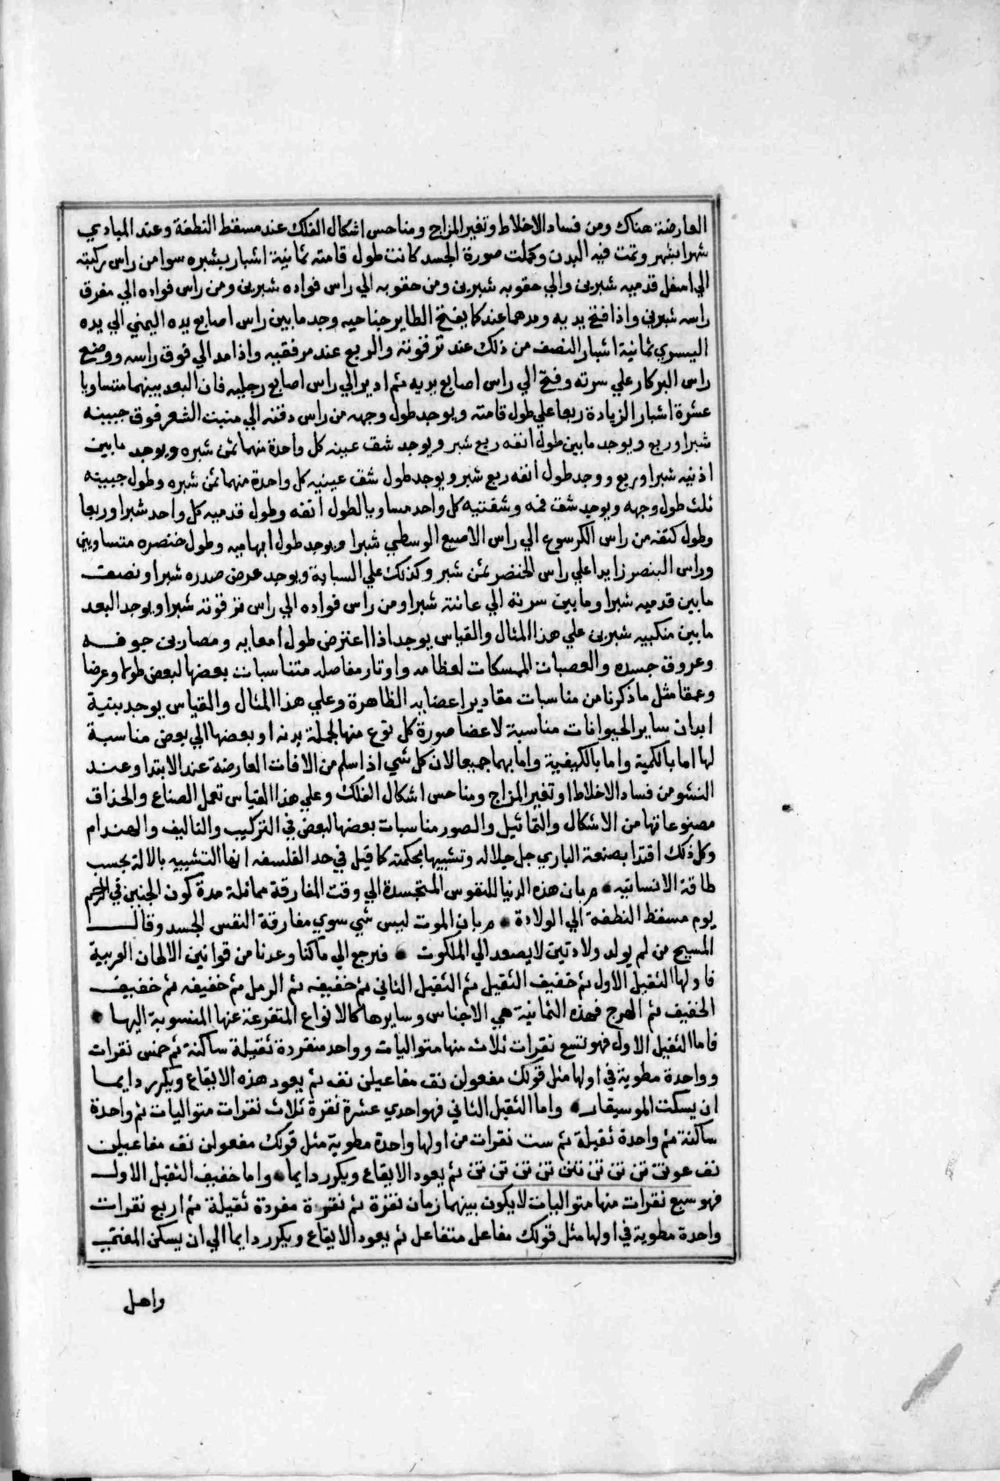 العارضة هناك ومن فساد الاخلاط وتغير المزاج ومناحس اشكال الفلك عند مسقط النطفة وعند المبادي
شهرا بشهر وتمت فيه البدن وكملت صورة الجسد كانت طول قامته ثمانية اشبار بشبره سوا من راس ركبتيه
الي اسفل قدميه شبرين والي حقويه شبرين ومن حقويه الي راس فواده شبرين ومن راس فواده الي مفرق
راسه شبرين واذا فتح يديه ومدهما عند كما يفتح الطاير جناحيه وجد ما بين راس اصابع يده اليمني الي يده
اليسري ثمانية اشبار النصف من ذلك عند ترقوته والربع عند مرفقيه واذا مد الي فوق راسه ووضع
راس البركار علي سرته وفتح الي راس اصابع يديه ثم ادير الي راس اصابع رجليه فان البعد بينهما متساويا
عشرة اشبار الزيادة ربعا علي طول قامته ويوجد طول وجهه من راس دقنه الي منبت الشعر فوق جبينه
شبرا وربع ويوجد ما بين طول انفه ربع شبر ويوجد شق عينه كل واحدة منهما ثمن شبره ويوجد ما بين
اذنيه شبرا وربع ووجد طول انفه ربع شبر ويوجد طول شق عينيه كل واحدة منهما ثمن شبره وطول جبينه
ثلث طول وجهه ويوجد شق فمه وشفتيه كل واحد مساويا لطول انفه وطول قدميه كل واحد شبرا وربعا
وطول كتفه من راس الكرسوع الي راس الاصبع الوسطي شبرا ويوجد طول ابهاميه وطول خنصره متساويين
وراس البنصر زايدا علي راس الخنصر ثمن شبر وكذلك علي السبابة ويوجد عرض صدره شبرا ونصف
ما بين قدميه شبرا وما بين سرته الي عانته شبرا ومن راس فواده الي راس ترقوته شبرا ويوجد البعد
ما بين منكبيه شبرين علي هذا المثال والقياس يوجد اذا اعترض طول امعايه ومصارين جوفه
وعروق جسده والعصبات الممسكات لعظامه واوتار مفاصله متناسبات بعضها لبعض طولا وعرضا
وعمقا مثل ما ذكرنا من مناسبات مقادير اعضايه الظاهرة وعلي هذا المثال والقياس يوجد بنية
ابدان ساير الحيوانات مناسبة لاعضا صورة كل نوع منها لجملة بدنه او بعضها الي بعض مناسبة
لها اما بالكمية واما بالكيفية واما بهما جميعا لان كل شي اذا سلم من الافات العارضة عند الابتدا وعند
النشو من فساد الاخلاط او تغير المزاج ومناحس اشكال الفلك وعلي هذا القياس تعمل الصناع والحذاق
مصنوعاتها من الاشكال والتماثيل والصور مناسبات بعضها لبعض في التركيب والتاليف والهندام
وكل ذلك اقتدا بصنعة الباري جل جلاله وتشبيها بحكمته كما قيل في حد الفلسفه انها التشبيه بالاله بحسب
طاقة الانسانيه مر بان هذه الدنيا للنفوس المتجسدة الي وقت المفارقة مماثلة مدة كون الجنين في الرحم
يوم مسقط النطفة الي الولادة مر بان الموت ليس شي سوي مفارقة النفس الجسد وقال
المسيح من لم يولد ولادتين لا يصعد الي الملكوت فنرجع الي ما كنا وعدنا من قوانين الالحان العربية
فاولها الثقيل الاول ثم خفيف الثقيل ثم الثقيل الثاني ثم خفيفه ثم الرمل ثم خفيفه ثم خفيف
الخفيف ثم الهزج فهذه الثمانية هي الاجناس وسايرها كالانواع المتفرعة عنها المنسوبة اليها
فاما الثقيل الاول فهو تسع نقرات ثلاث منها متواليات وواحد منفردة ثقيلة ساكنة ثم خمس نقرات
وواحدة مطوية في اولها مثل قولك مفعولن نف مفاعيلن نف ثم يعود هذه الايقاع ويكرر دايما
ان يسكت الموسيقار واما الثقيل الثاني فهو احدي عشرة نقرة ثلاث نقرات متواليات ثم واحدة
ساكنة ثم واحدة ثقيلة ثم ست نقرات من اولها واحدة مطوية مثل قولك مفعولن نف مفاعيلن
نف عولن تن تن تن تنن تن تن تن ثم يعود الايقاع ويكرر دايما واما خفيف الثقيل الاول
فهو سبع نقرات منها متواليات لا يكون بينهما زمان نقرة ثم نقرة مفردة ثقيلة ثم اربع نقرات
واحدة مطوية في اولها مثل قولك مفاعل متفاعل ثم يعود الايقاع ويكرر دايما الي ان يسكن المغني
واهل